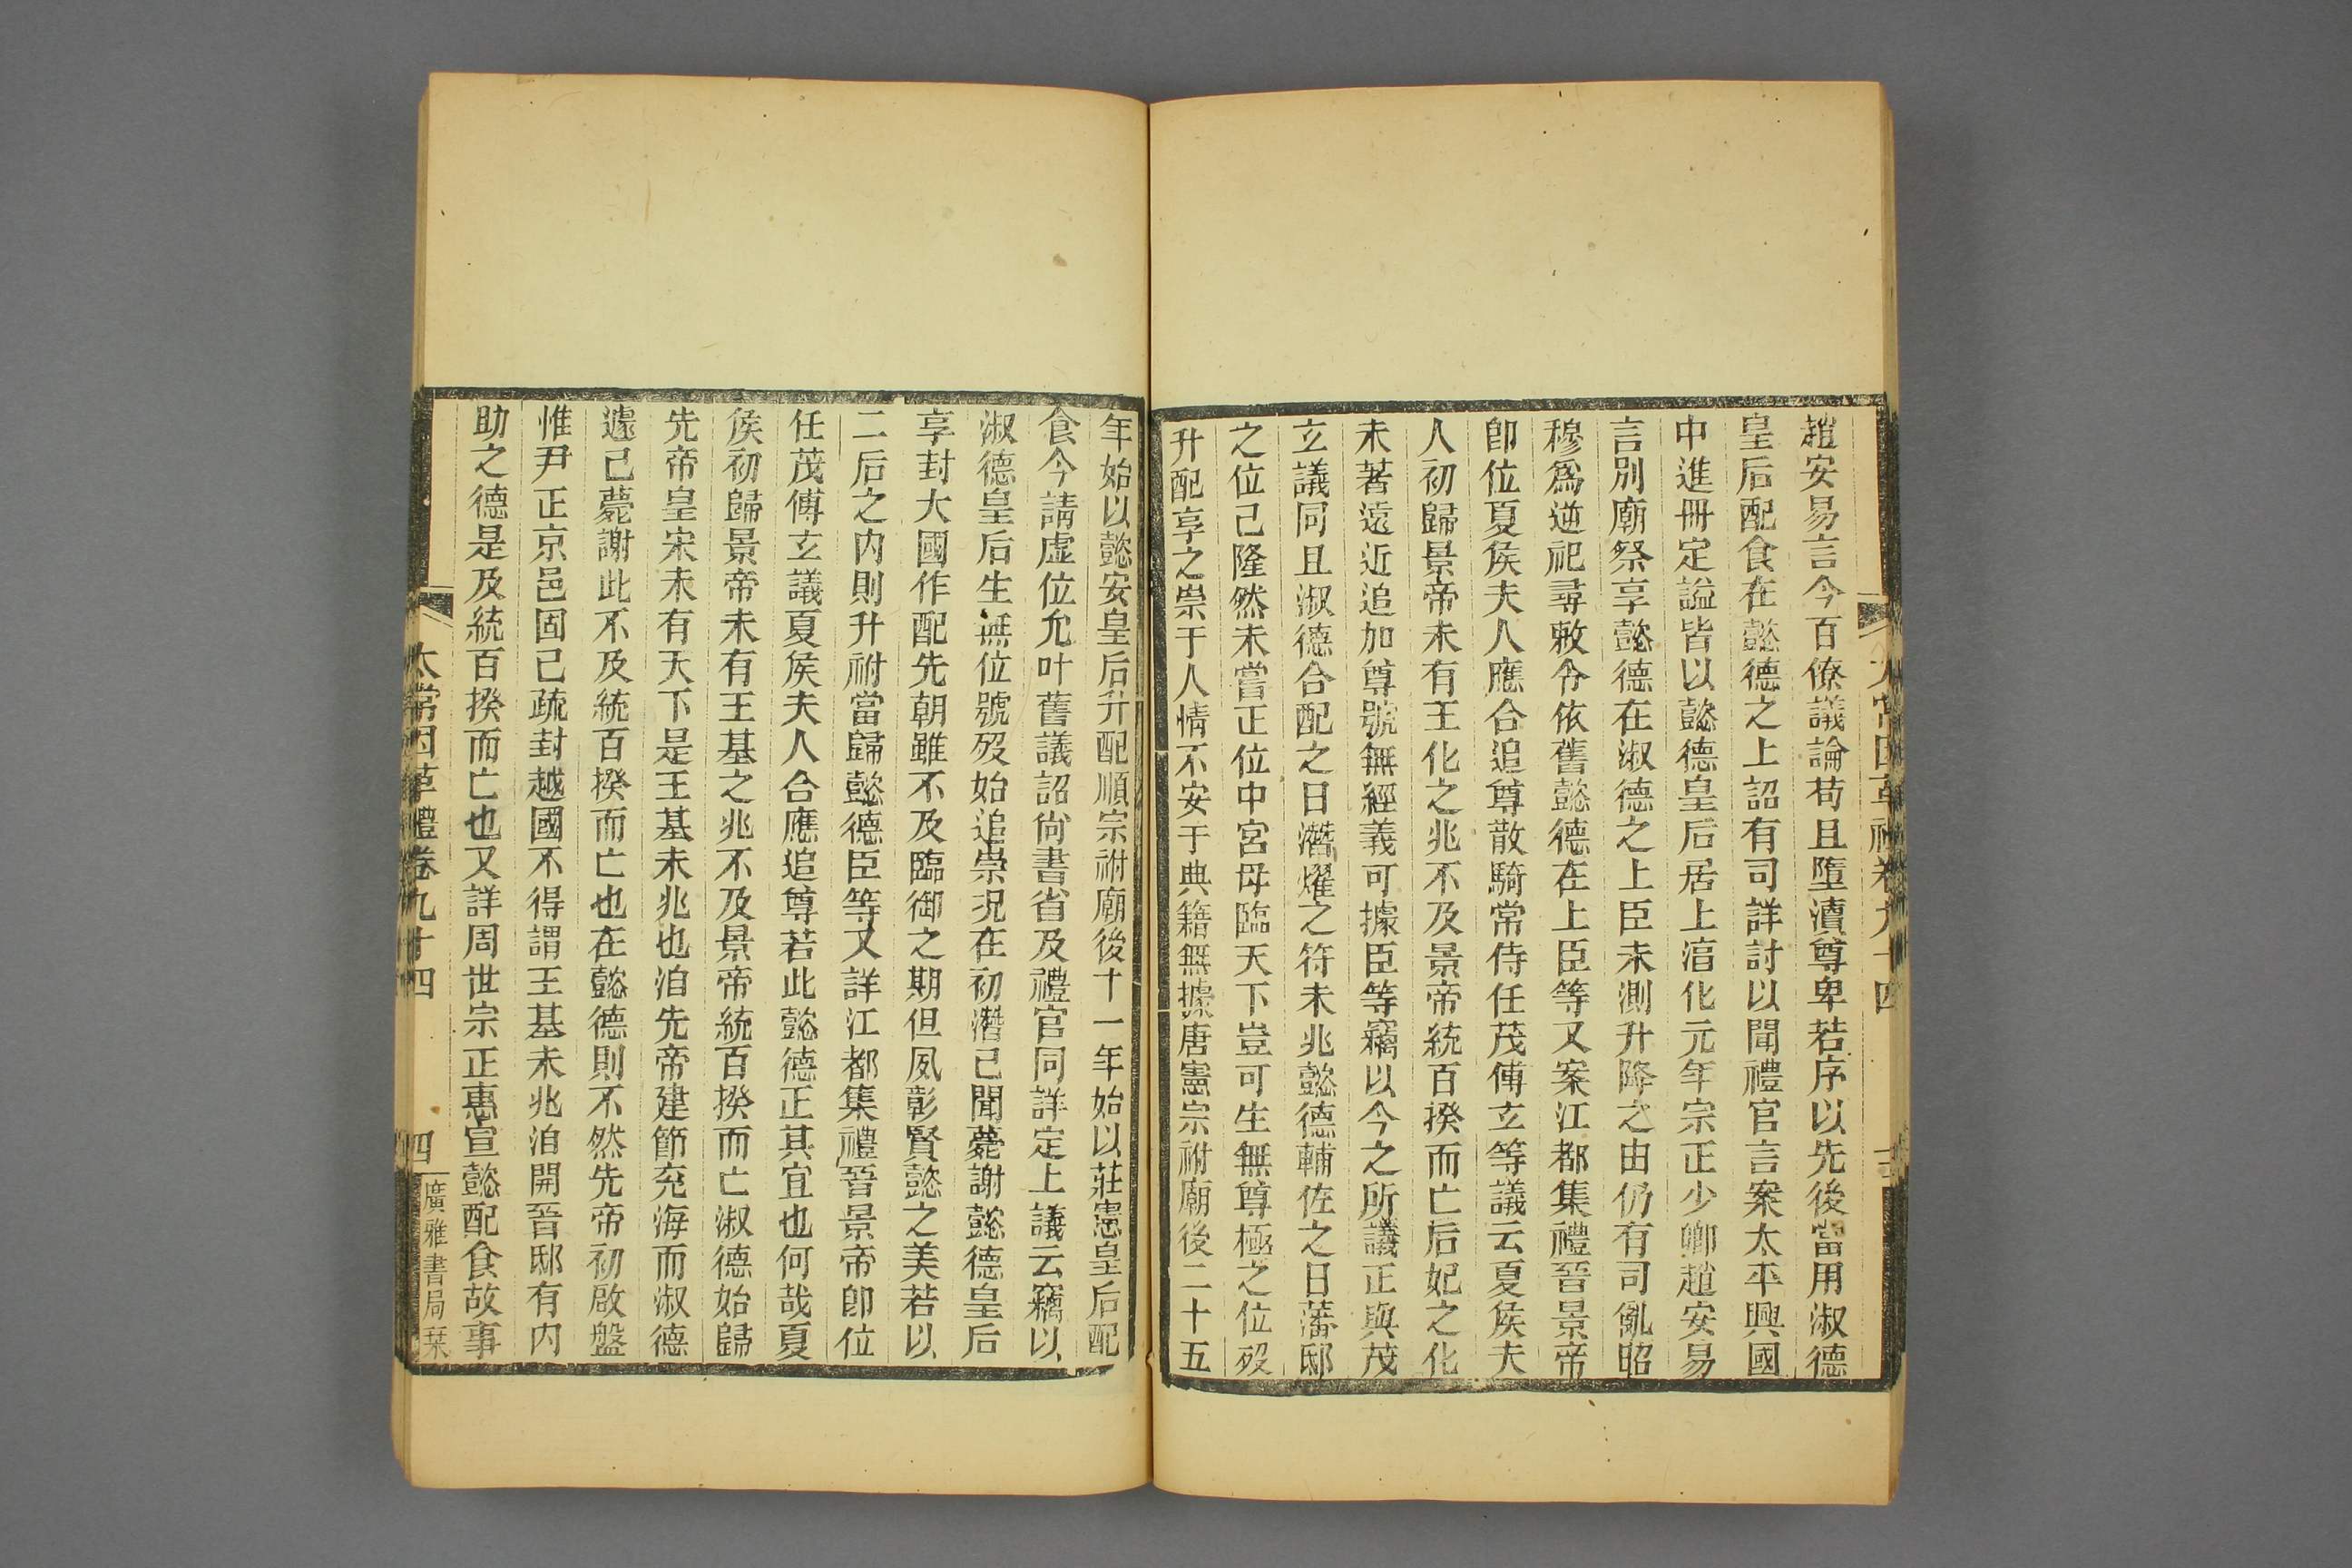 趙安易言今百僚議論苟且墮瀆尊卑若序以先後當用淑德
皇后配食在懿德之上詔有司詳討以聞禮官言案太平興國
中進冊定謚皆以懿德皇后居上淯化元年宗正少卿趙安易
言別廟祭享懿德在淑德之上臣未測升降之由仍有司亂昭
穆爲逆祀尋敕令依舊懿德在上臣等又案江都集禮晉景帝
卽位夏侯夫人應合追尊散騎常侍任茂傅玄等議云夏侯夫
人初歸景帝未有王化之兆不及景帝統百揆而亡后妃之化
未著遠近追加尊號無經義可據臣等竊以今之所議正與茂
玄議同且淑德合配之日潛燿之符未兆懿德輔佐之日藩邸
之位已隆然未嘗正位中宮母臨天下豈可生無尊極之位歿
升配享之崇于人情不安于典籍無據唐憲宗祔廟後二十五
年始以懿安皇后升配順宗祔廟後十一年始以莊憲皇后配
食今請虛位允叶舊議詔尙書省及禮官同詳定上議云竊以
淑德皇后生無位號歿始追崇況在初潛已聞薨謝懿德皇后
享封大國作配先朝雖不及臨御之期但夙彰賢懿之美若以
二后之內則升祔當歸懿德臣等又詳江都集禮晉景帝卽位
任茂傅玄議夏侯夫人合應追尊若此懿德正其宜也何哉夏
侯初歸景帝未有王基之兆不及景帝統百揆而亡淑德始歸
先帝皇宋未有天下是王基未兆也洎先帝建節兖海而淑德
遽已薨謝此不及統百揆而亡也在懿德則不然先帝初啟盤
惟尹正京邑固已疏封越國不得謂王基未兆洎開晉邸有內
助之德是及統百揆而亡也又詳周世宗正惠宣懿配食故事
太常因革禮卷九十四
四
廣雅書局栞